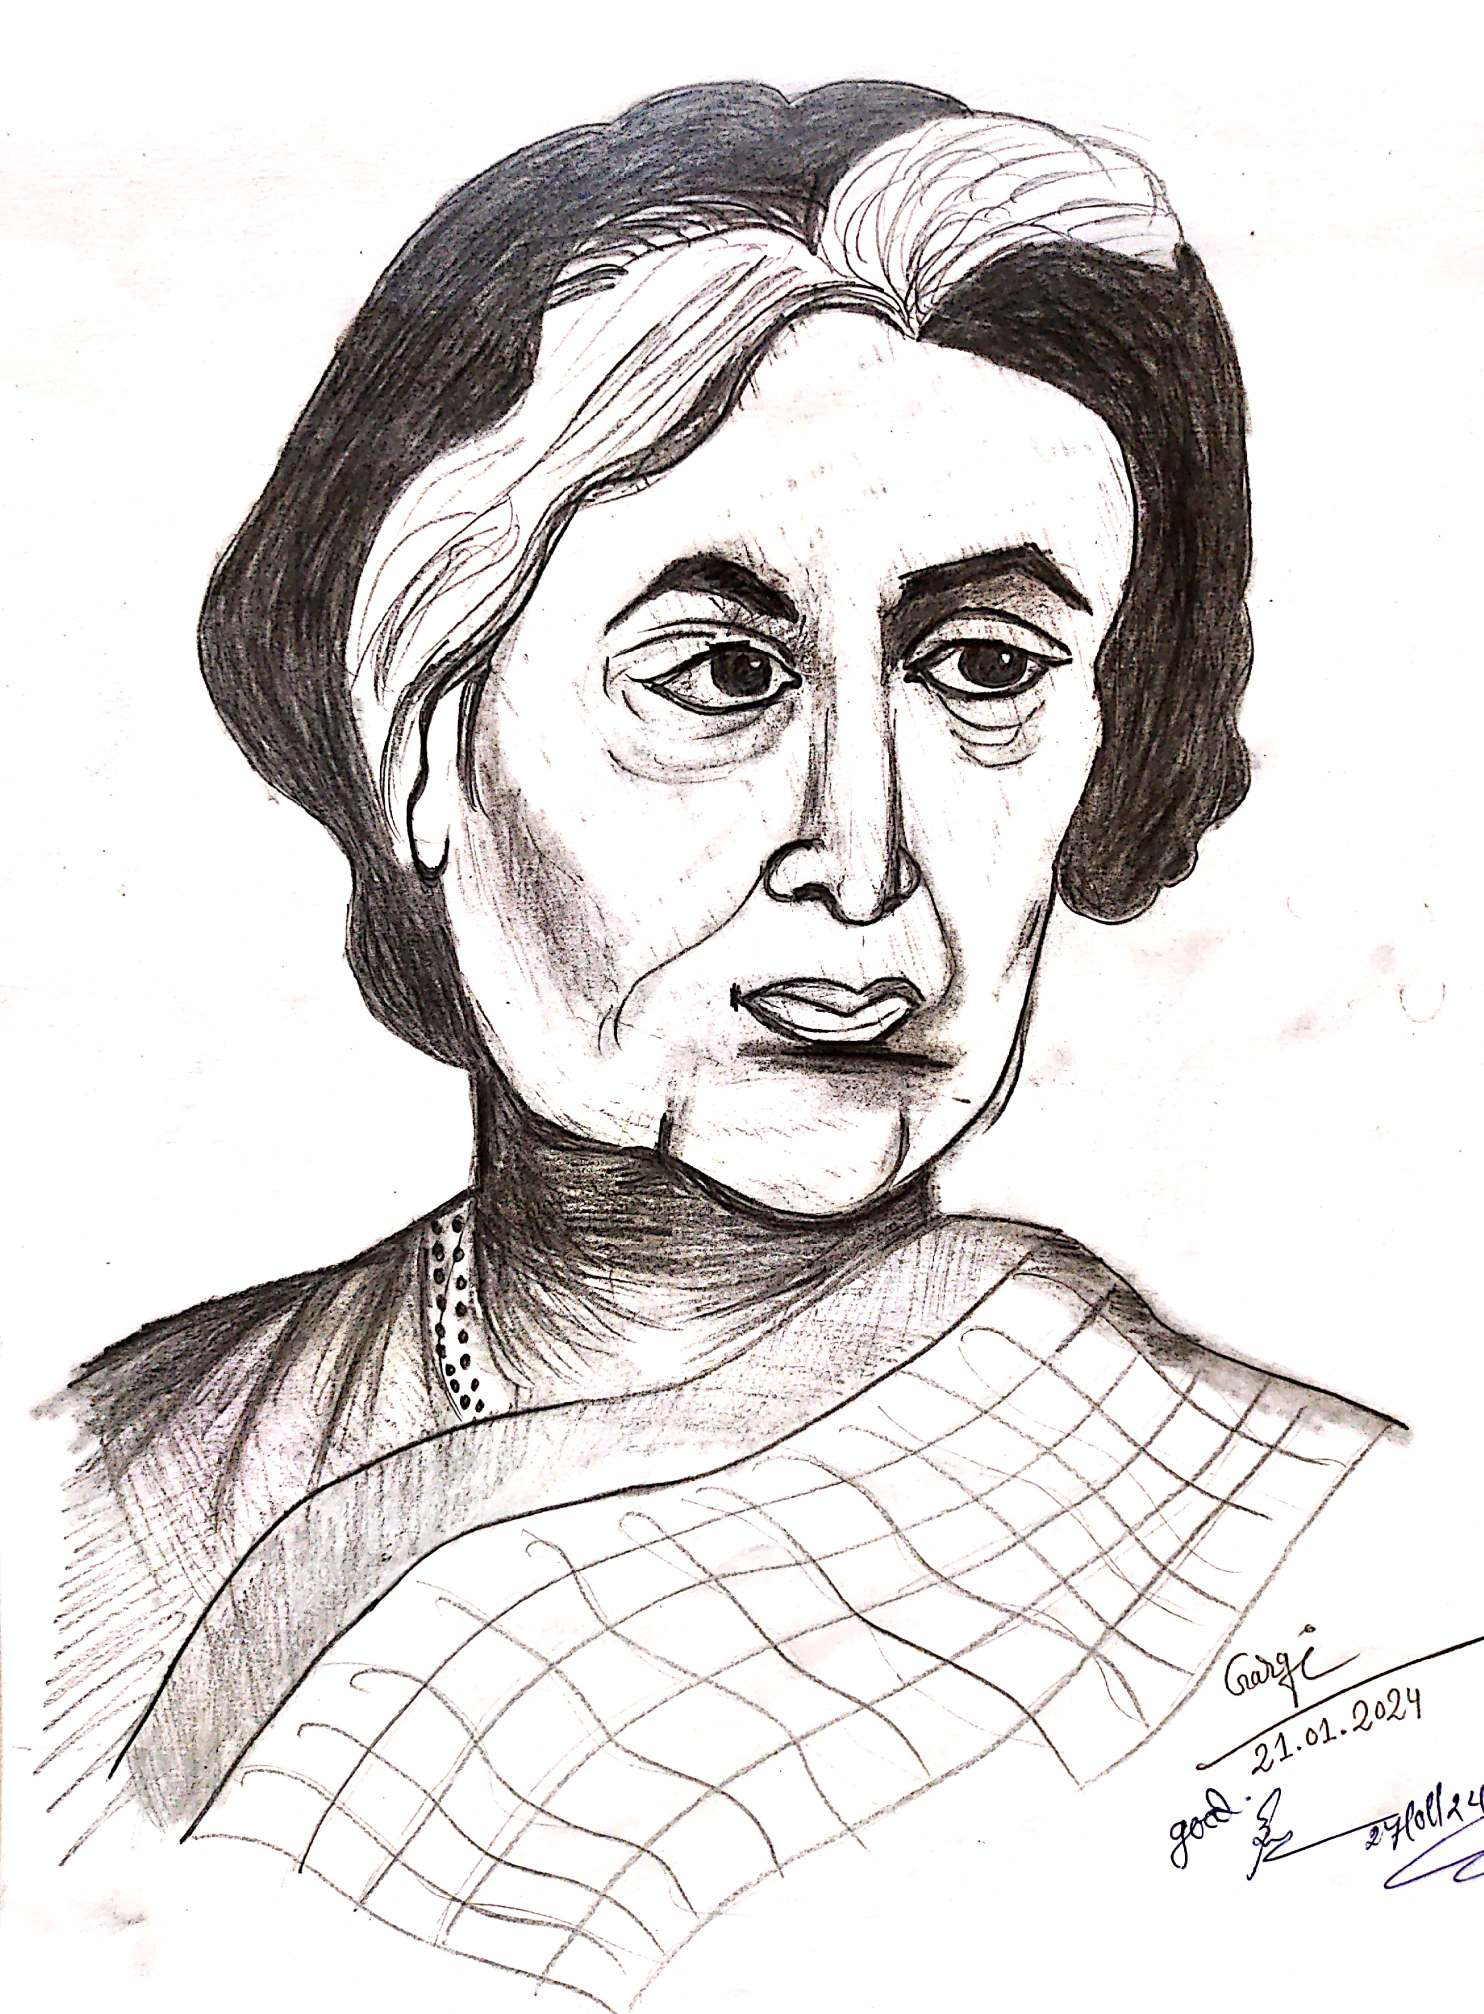 Gargi
21.01.2024
good.
27/01/24